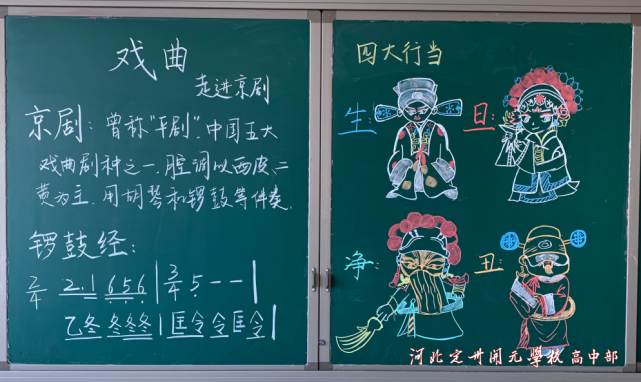 戏曲
走进京剧
京剧：曾称"平剧".中国五大
戏曲剧种之一.腔调以西皮、二
黄为主.用胡琴和锣鼓等伴奏.
锣鼓经：
2/4 2.1 656 | 3/4 5 - - |
乙冬 冬冬冬 | 匡令令匡令 |
四大行当
生：
旦：
净：
丑：
河北定州开元学校高中部